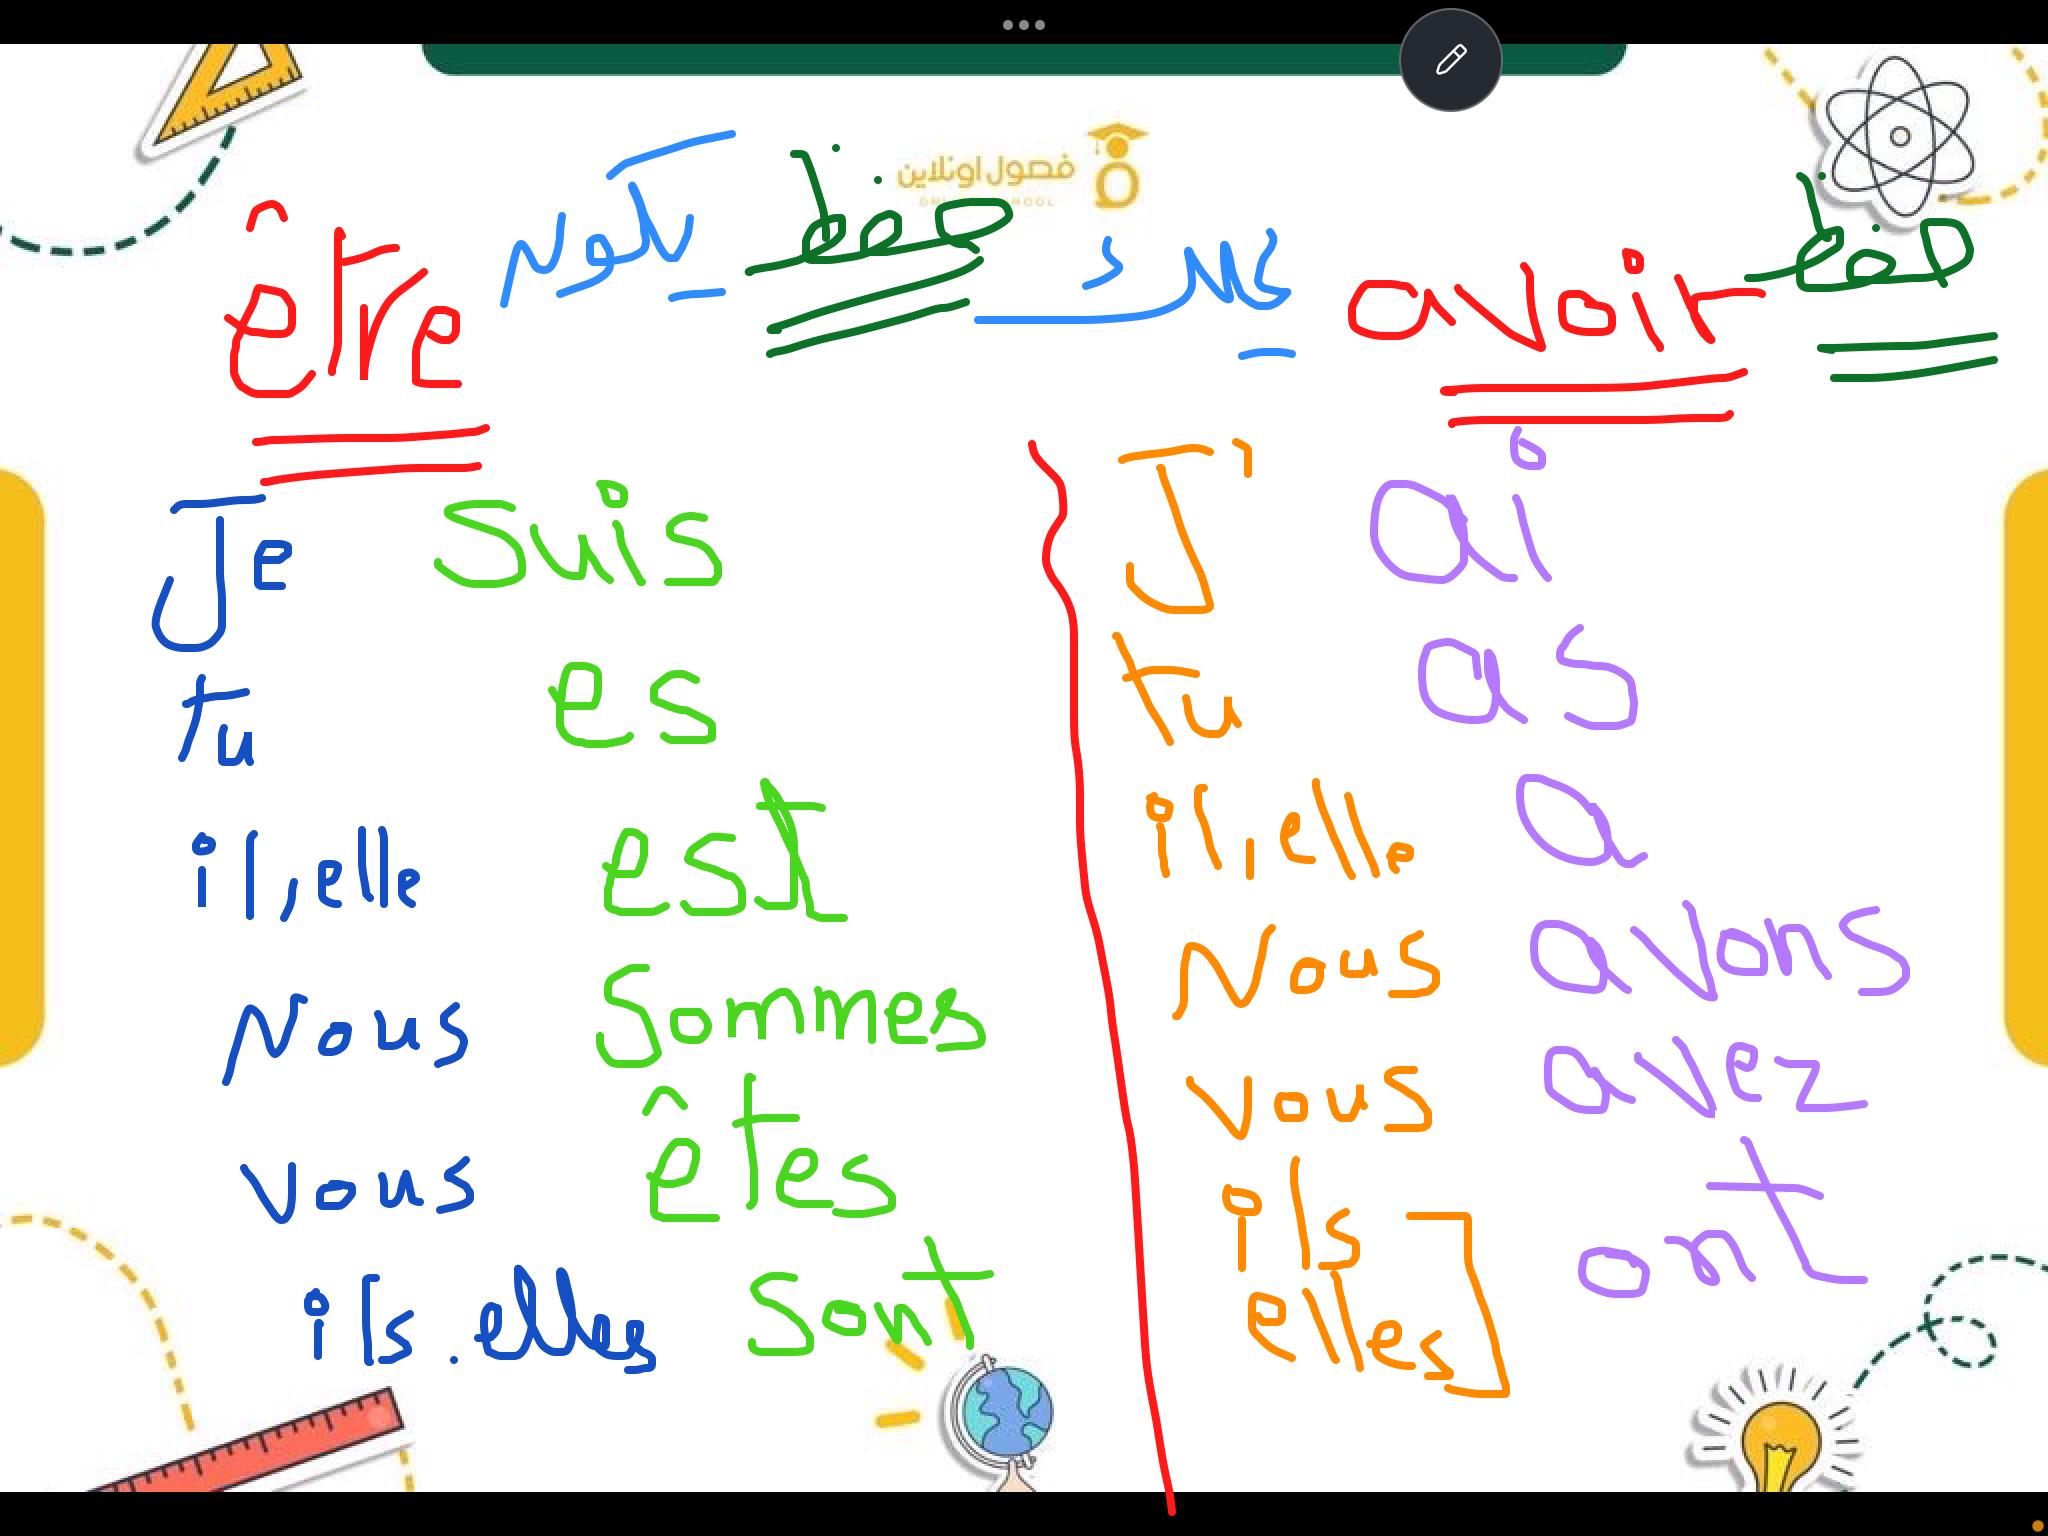 فصول اونلاين
être يكون حفظ
Je suis
tu es
il, elle est
Nous sommes
vous êtes
ils . elles sont
يملك avoir حفظ
J' ai
tu as
il, elle a
Nous avons
vous avez
ils
elles ont